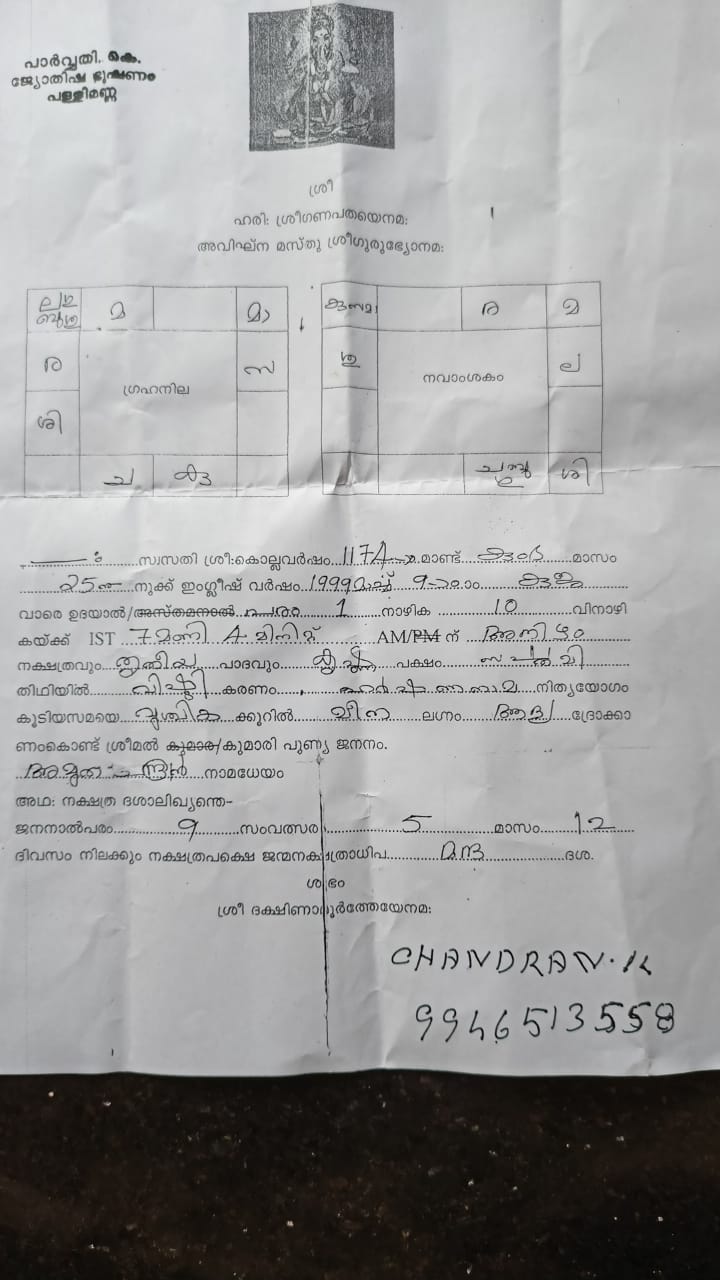 പാർവ്വതി. കെ.
ജ്യോതിഷ ഭൂഷണം
പള്ളിമണ്ണ
ശ്രീ
ഹരി: ശ്രീഗണപതയെനമ:
അവിഘ്ന മസ്തു ശ്രീഗുരുഭ്യോനമ:
മ മാ ര മ
ര സ ല
ഗ്രഹനില നവാംശകം
ശി
ച ശി
സ്വസതി ശ്രീ:കൊല്ലവർഷം 1174 മാണ്ട് കുംഭ മാസം
25 നുക്ക് ഇംഗ്ലീഷ് വർഷം 1999 മാർച്ച് 9
വാരെ ഉദയാൽ/അസ്തമനാൽ 1 നാഴിക 10 വിനാഴി
കയ്ക്ക് IST 7 മണി 4 മിനിട്ട് AM/PM ന് അനിഴം
നക്ഷത്രവും തൃതീയ പാദവും കൃഷ്ണ പക്ഷം സപ്തമി
തിഥിയിൽ വിഷ്ടി കരണം നിത്യയോഗം
കൂടിയസമയെ വൃശ്ചിക ക്കൂറിൽ മീന ലഗ്നം ആദ്യ ദ്രോക്കാ
ണംകൊണ്ട് ശ്രീമൽ കുമാര/കുമാരി പുണ്യ ജനനം.
നാമധേയം
അഥ: നക്ഷത്ര ദശാലിഖ്യന്തെ-
ജനനാൽപരം 9 സംവത്സര 5 മാസം 12
ദിവസം നിലക്കും നക്ഷത്രപക്ഷെ ജന്മനക്ഷത്രാധിപ മന്ദ ദശ.
ശുഭം
ശ്രീ ദക്ഷിണാമൂർത്തേയേനമ:
CHANDRAN.K
9946513558